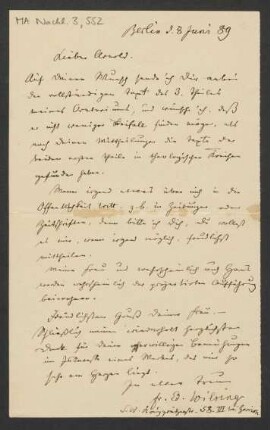 MA Nachl. 3, 552
Berlin d. 8 Juni 89
Lieber Arnold.
Auf Deinen Wunsch sende ich Dir anbei
den vollständigen Text des 3. Theiles
meines Oratoriums, und wünsche ich, daß
er nicht weniger Beifall finden möge, als
nach Deinen Mittheilungen die Texte der
beiden ersten Theile in theologischen Kreisen
gefunden haben.
Wenn irgend etwas über mich in die
Öffentlichkeit tritt, z.b. in Zeitungen oder
Zeitschriften, dann bitte ich Dich, Du wollest
es mir, wenn irgend möglich, freundlichst
mittheilen.
Meine Frau und wahrscheinlich auch
werden wahrscheinlich der projectirten Aufführung
beiwohnen.
Freundlichsten Gruß Deiner Frau.
Schließlich meinen wiederholt herzlichsten
Dank für Deine Bemühungen
im Interesse eines Werkes, das mir so
sehr am Herzen liegt.
In alter Treue
fr. Ed. Wilsing